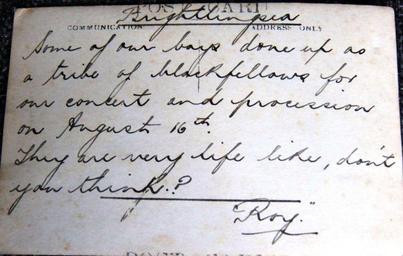 POST CARD
Brightlingsea
COMMUNICATION ADDRESS ONLY
Some of our boys done up as
a tribe of blackfellows for
our concert and procession
on August 16th.
They are very life like, don't
you think.?
"Roy."